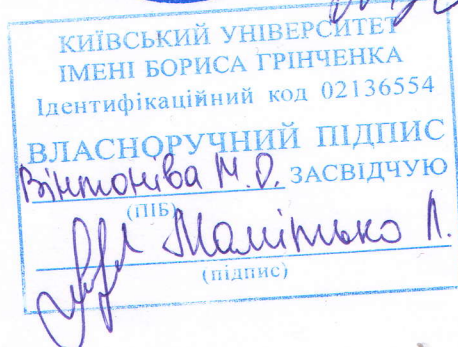 КИЇВСЬКИЙ УНІВЕРСИТЕТ
ІМЕНІ БОРИСА ГРІНЧЕНКА
Ідентифікаційний код 02136554
ВЛАСНОРУЧНИЙ ПІДПИС
Вінтонів М.О. ЗАСВІДЧУЮ
(ПІБ)
Л.
(підпис)